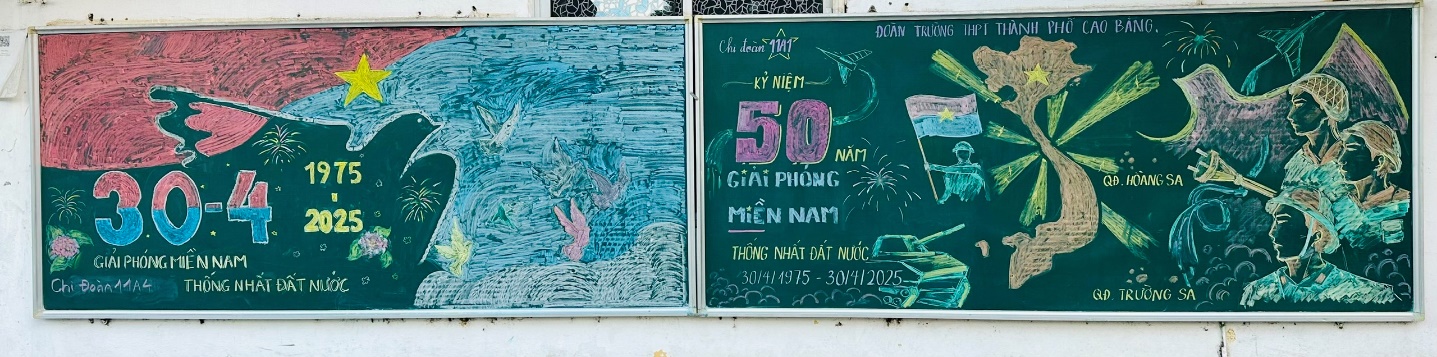 30-4
1975
-
2025
GIẢI PHÓNG MIỀN NAM
Chi Đoàn 11A4
THỐNG NHẤT ĐẤT NƯỚC
ĐOÀN TRƯỜNG THPT THÀNH PHỐ CAO BẰNG.
Chi đoàn 11A1
KỶ NIỆM
50 NĂM
GIẢI PHÓNG
MIỀN NAM
THỐNG NHẤT ĐẤT NƯỚC
30/4/1975 - 30/4/2025
QĐ. HOÀNG SA
QĐ. TRƯỜNG SA